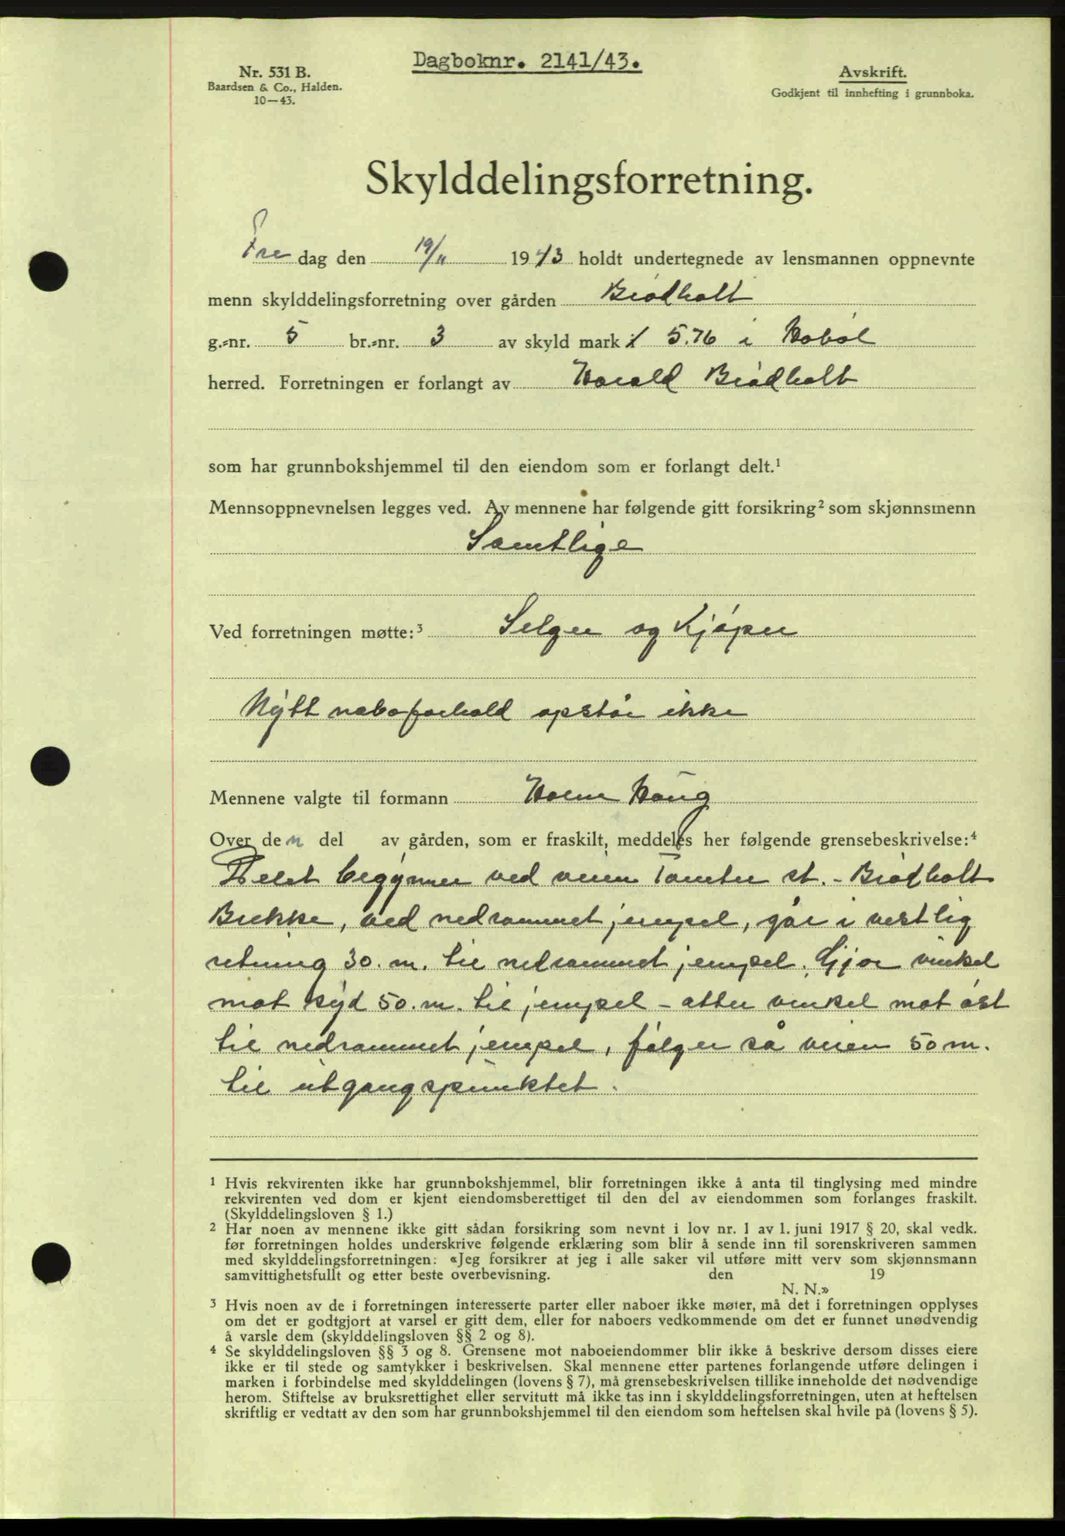 Dagboknr. 2141/43.
Nr. 531 B.
Baardsen & Co., Halden.
10—43.
Avskrift.
Godkjent til innhefting i grunnboka.
Skylddelingsforretning.
Fre dag den 19/11 1943 holdt undertegnede av lensmannen oppnevnte
menn skylddelingsforretning over gården Brødholt
g.-nr. 5 br.-nr. 3 av skyld mark 5.76 i Hobøl
herred. Forretningen er forlangt av Harald Brødholt
som har grunnbokshjemmel til den eiendom som er forlangt delt.¹
Mennsoppnevnelsen legges ved. Av mennene har følgende gitt forsikring² som skjønnsmenn
Samtlige
Ved forretningen møtte:³ Selger og Kjøper
Nytt naboforhold opstår ikke
Mennene valgte til formann Haug
Over den del av gården, som er fraskilt, meddeles her følgende grensebeskrivelse:⁴
Delet begynner ved veien Tomter st. - Brødholt
Brekke, ved nedrammet jernpel, går i vestlig
retning 30. m. til nedrammet jernpel. Gjør vinkel
mot syd 50. m. til jernpel - atter vinkel mot øst
til nedrammet jernpel, følger så veien 50 m.
til utgangspunktet.
¹ Hvis rekvirenten ikke har grunnbokshjemmel, blir forretningen ikke å anta til tinglysing med mindre
rekvirenten ved dom er kjent eiendomsberettiget til den del av eiendommen som forlanges fraskilt.
(Skylddelingsloven § 1.)
² Har noen av mennene ikke gitt sådan forsikring som nevnt i lov nr. 1 av 1. juni 1917 § 20, skal vedk.
før forretningen holdes underskrive følgende erklæring som blir å sende inn til sorenskriveren sammen
med skylddelingsforretningen: «Jeg forsikrer at jeg i alle saker vil utføre mitt verv som skjønnsmann
samvittighetsfullt og etter beste overbevisning. den 19
N. N.»
³ Hvis noen av de i forretningen interesserte parter eller naboer ikke møter, må det i forretningen opplyses
om det er godtgjort at varsel er gitt dem, eller for naboers vedkommende om det er funnet unødvendig
å varsle dem (skylddelingsloven §§ 2 og 8).
⁴ Se skylddelingsloven §§ 3 og 8. Grensene mot naboeiendommer blir ikke å beskrive dersom disses eiere
ikke er til stede og samtykker i beskrivelsen. Skal mennene etter partenes forlangende utføre delingen i
marken i forbindelse med skylddelingen (lovens § 7), må grensebeskrivelsen tillike inneholde det nødvendige
herom. Stiftelse av bruksrettighet eller servitutt må ikke tas inn i skylddelingsforretningen, uten at heftelsen
skriftlig er vedtatt av den som har grunnbokshjemmel til den eiendom som heftelsen skal hvile på (lovens § 5).